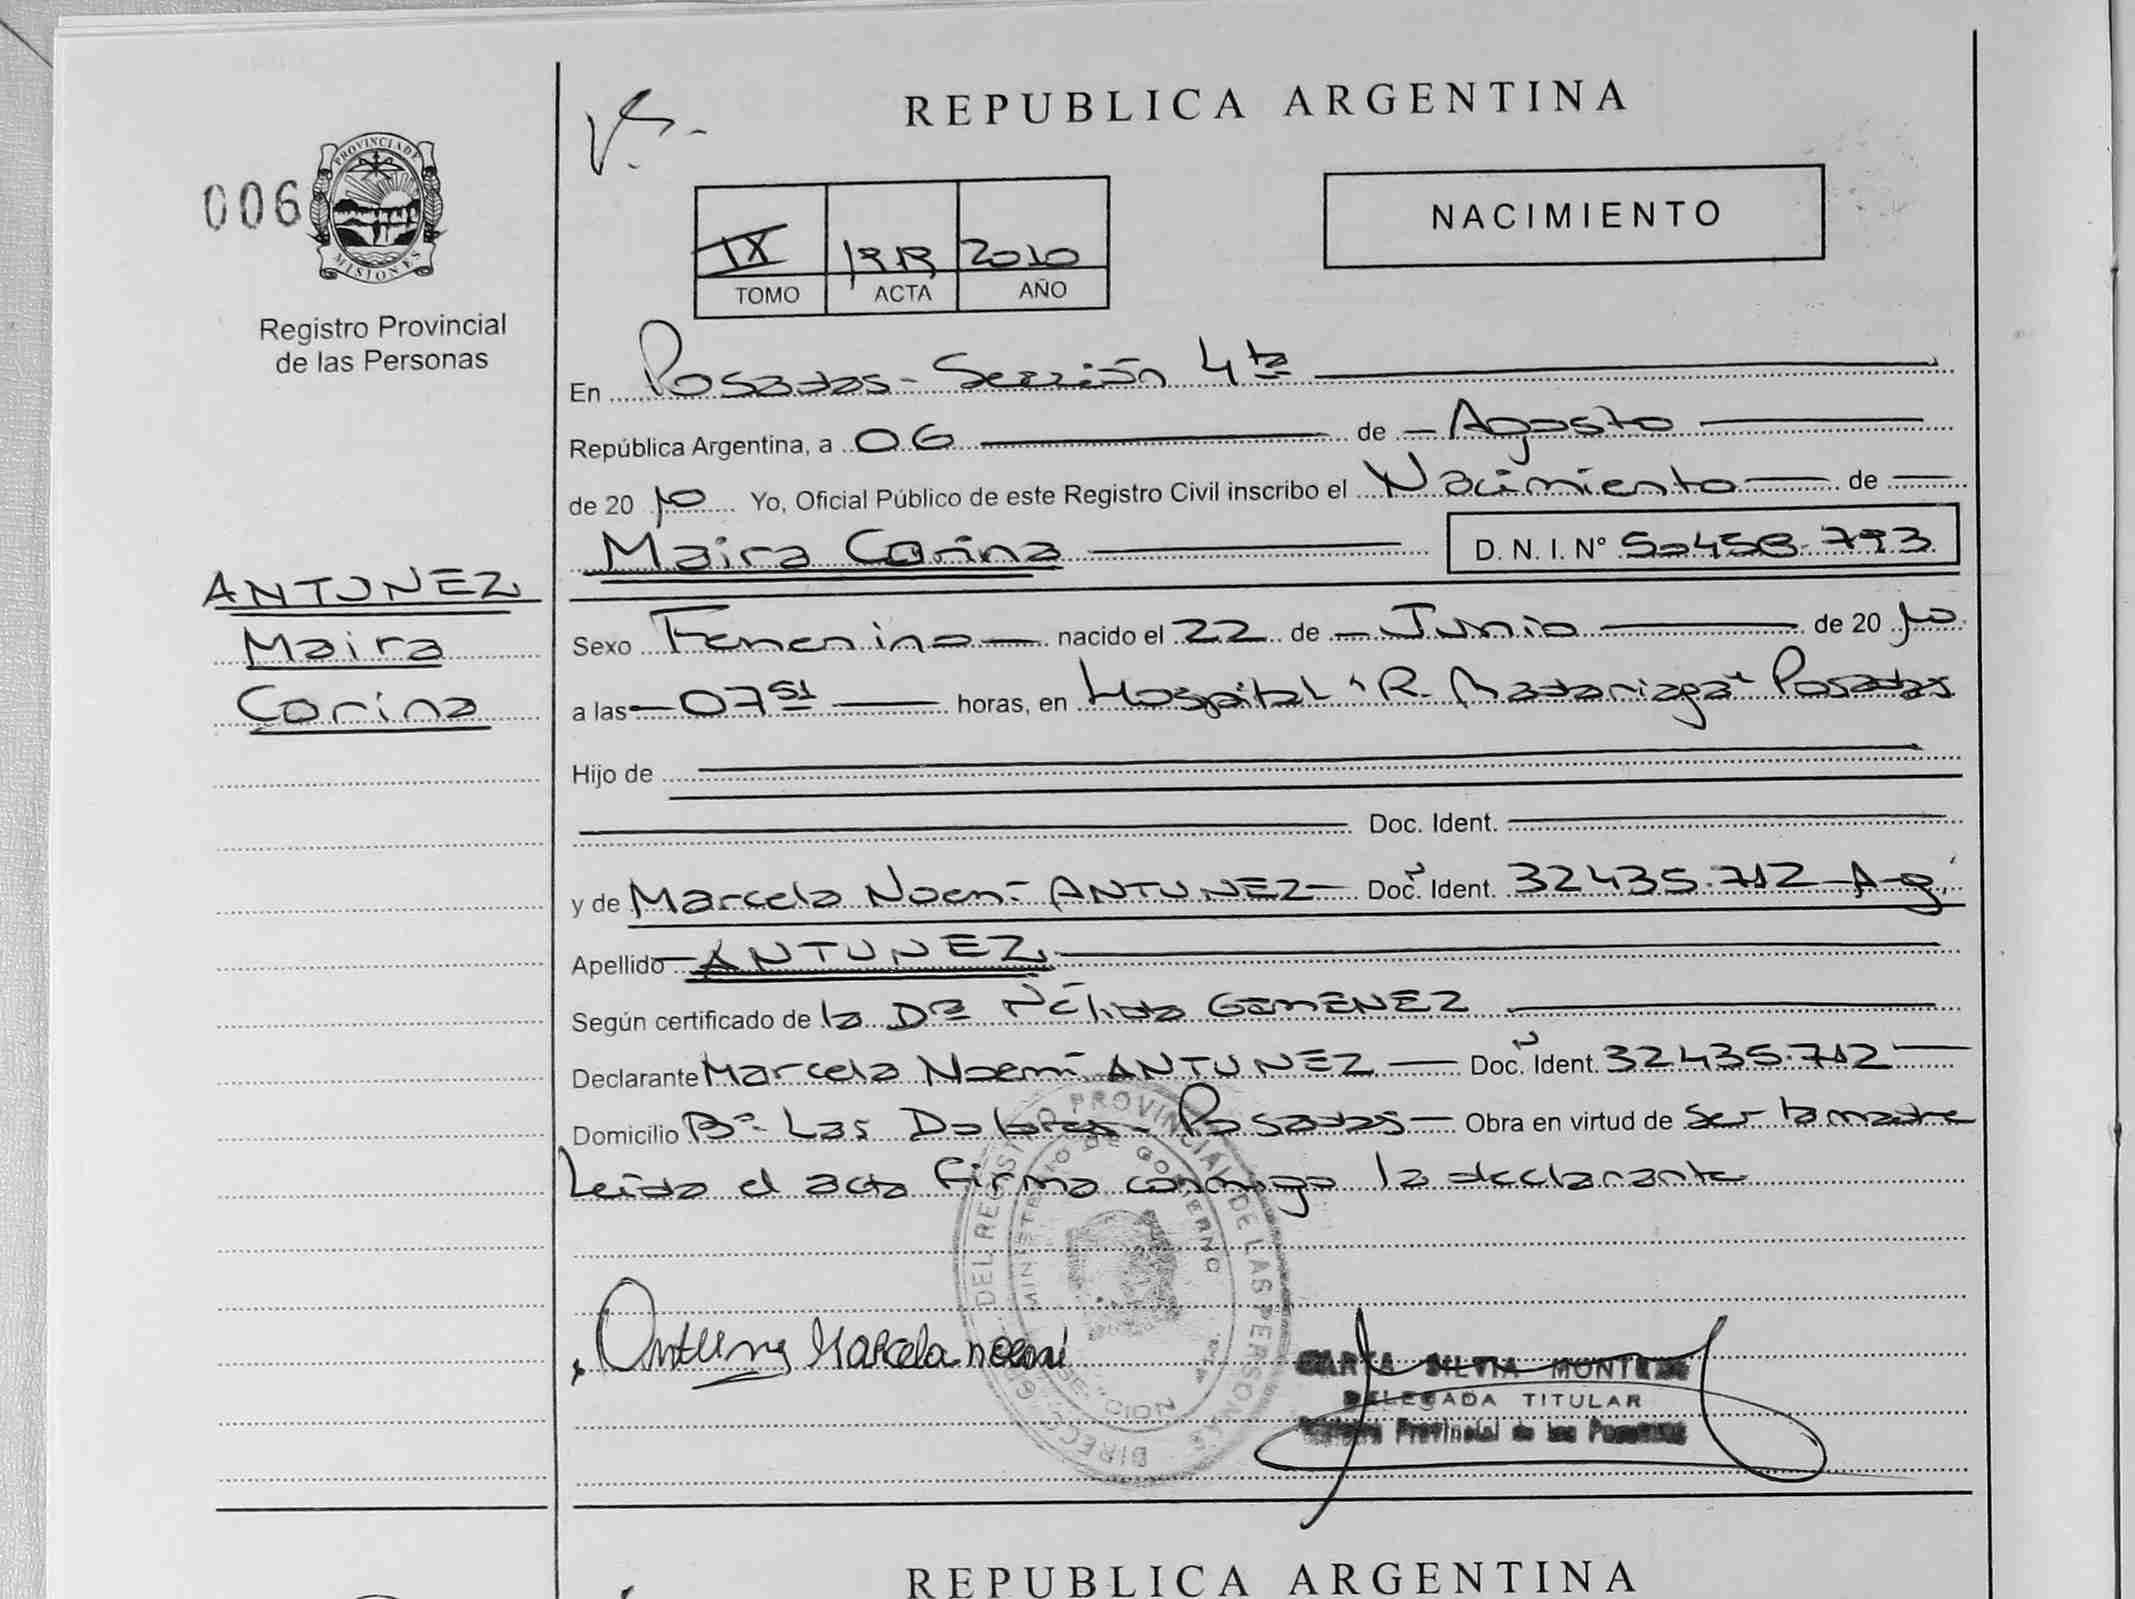 REPUBLICA ARGENTINA
006
PROVINCIA DE
MISIONES
Registro Provincial
de las Personas
IX 2010
TOMO ACTA AÑO
NACIMIENTO
En Posadas - Sección 4ta
República Argentina, a 06 de Agosto
de 2010 Yo, Oficial Público de este Registro Civil inscribo el Nacimiento de
Maira Corina D. N. I. N° 50458.793
ANTUNEZ
Maira
Corina
Sexo Femenino nacido el 22 de Junio de 2010
a las 07 51 horas, en Hospital "R. Madariaga" Posadas
Hijo de
Doc. Ident.
y de Marcela Noemí ANTUNEZ Doc. Ident. 32435.712 Arg.
Apellido ANTUNEZ
Según certificado de la Dra Nélida GIMENEZ
Declarante Marcela Noemí ANTUNEZ Doc. Ident. 32435.712
Domicilio Bº Las Dolores - Posadas Obra en virtud de ser la madre
Leída el acta firma conmigo la declarante
DEL REGISTRO PROVINCIAL DE LAS PERSONAS
MINISTERIO DE GOBIERNO
Antunez Marcela noemi
SILVIA
DELEGADA TITULAR
Registro Provincial de las Personas
REPUBLICA ARGENTINA